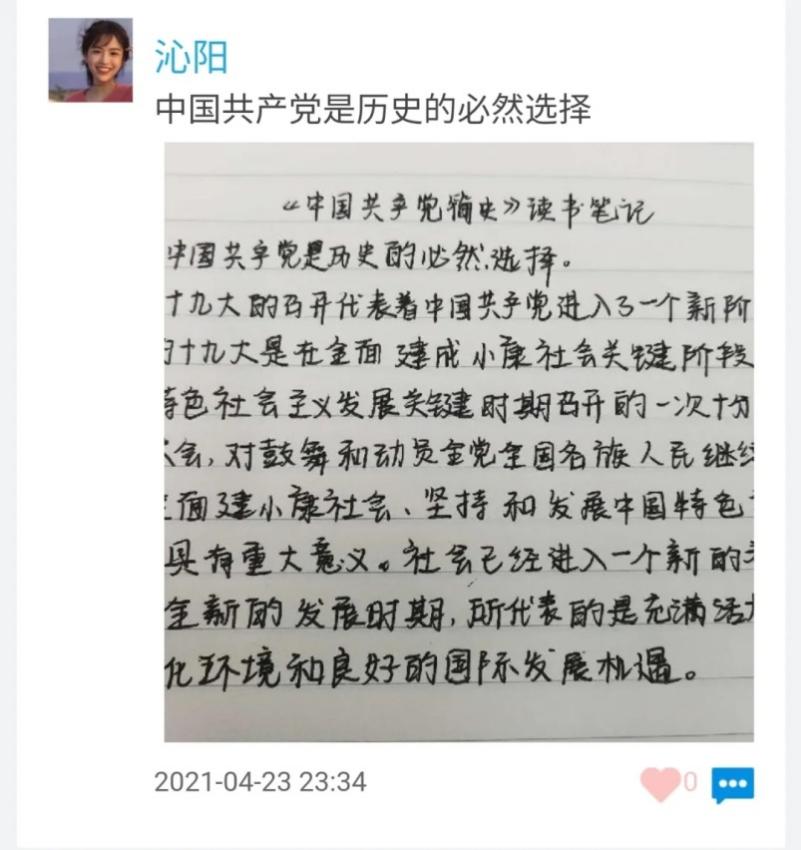 沁阳
中国共产党是历史的必然选择
《中国共产党简史》读书笔记
中国共产党是历史的必然选择。
十九大的召开代表着中国共产党进入了一个新阶
十九大是在全面建成小康社会关键阶段
特色社会主义发展关键时期召开的一次十分
会,对鼓舞和动员全党全国各族人民继续
面建小康社会、坚持和发展中国特色
具有重大意义。社会已经进入一个新的
全新的发展时期,所代表的是充满活
化环境和良好的国际发展机遇。
2021-04-23 23:34
0